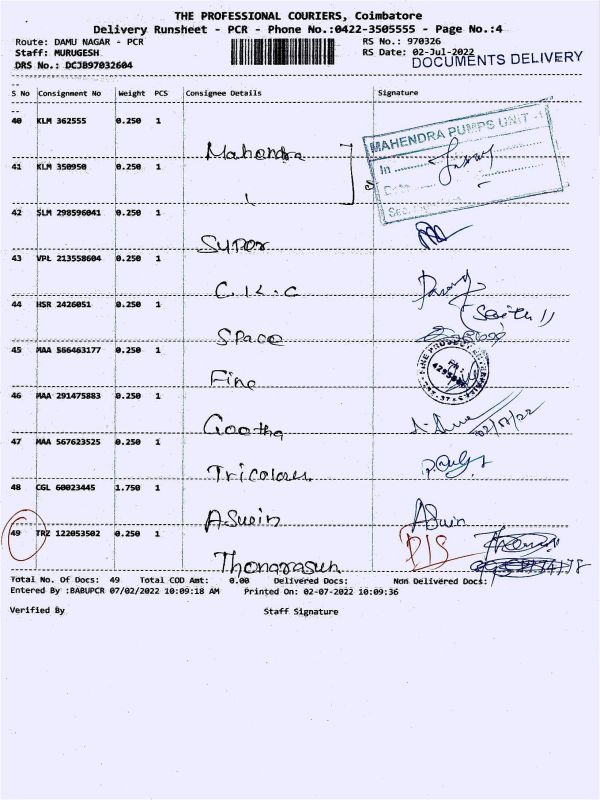 THE PROFESSIONAL COURIERS, Coimbatore
Delivery Runsheet - PCR - Phone No.:0422-3505555 - Page No.:4
Route: DAMU NAGAR - PCR RS No.: 970326
Staff: MURUGESH RS Date: 02-Jul-2022
DRS No.: DCJB97032604 DOCUMENTS DELIVERY
S No Consignment No Weight PCS Consignee Details Signature
40 KLM 362555 0.250 1
Mahendra MAHENDRA PUMPS UNIT -I
In
41 KLM 350950 0.250 1
42 SLM 298596041 0.250 1
Supor
43 VPL 213558604 0.250 1
C.K.C
44 HSR 2426051 0.250 1
Space
45 MAA 566463177 0.250 1
Fine
46 MAA 291475883 0.250 1
Gootha 02/07/22
47 MAA 567623525 0.250 1
Tricolour
48 CGL 60023445 1.750 1
ASwin ASwin
49 TRZ 122053502 0.250 1
Thangarasun DIS
Total No. Of Docs: 49 Total COD Amt: 0.00 Delivered Docs: Non Delivered Docs:
Entered By :BABUPCR 07/02/2022 10:09:18 AM Printed On: 02-07-2022 10:09:36
Verified By Staff Signature